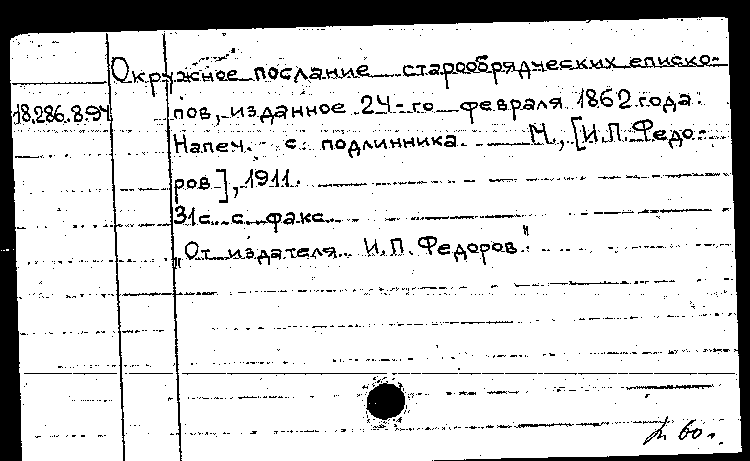 Окружное послание старообрядческих еписко-
18.286.8.94 пов, изданное 24-го февраля 1862 года.
Напеч. с подлинника. М., [И.П. Федо-
ров], 1911.
31 с. с факс.
„От издателя И.П. Федоров."
60